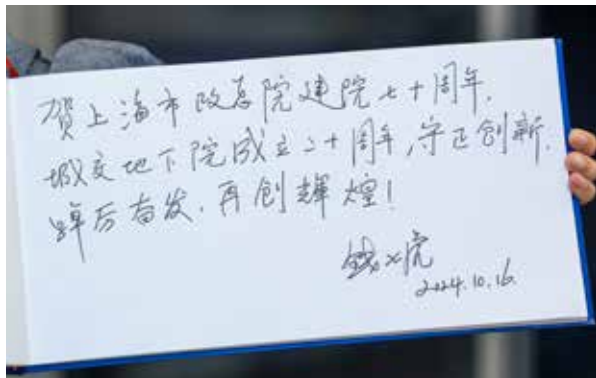 贺上海市政总院建院七十周年,
城交地下院成立二十周年,守正创新,
踔厉奋发,再创輝煌!
钱七虎
2024.10.16